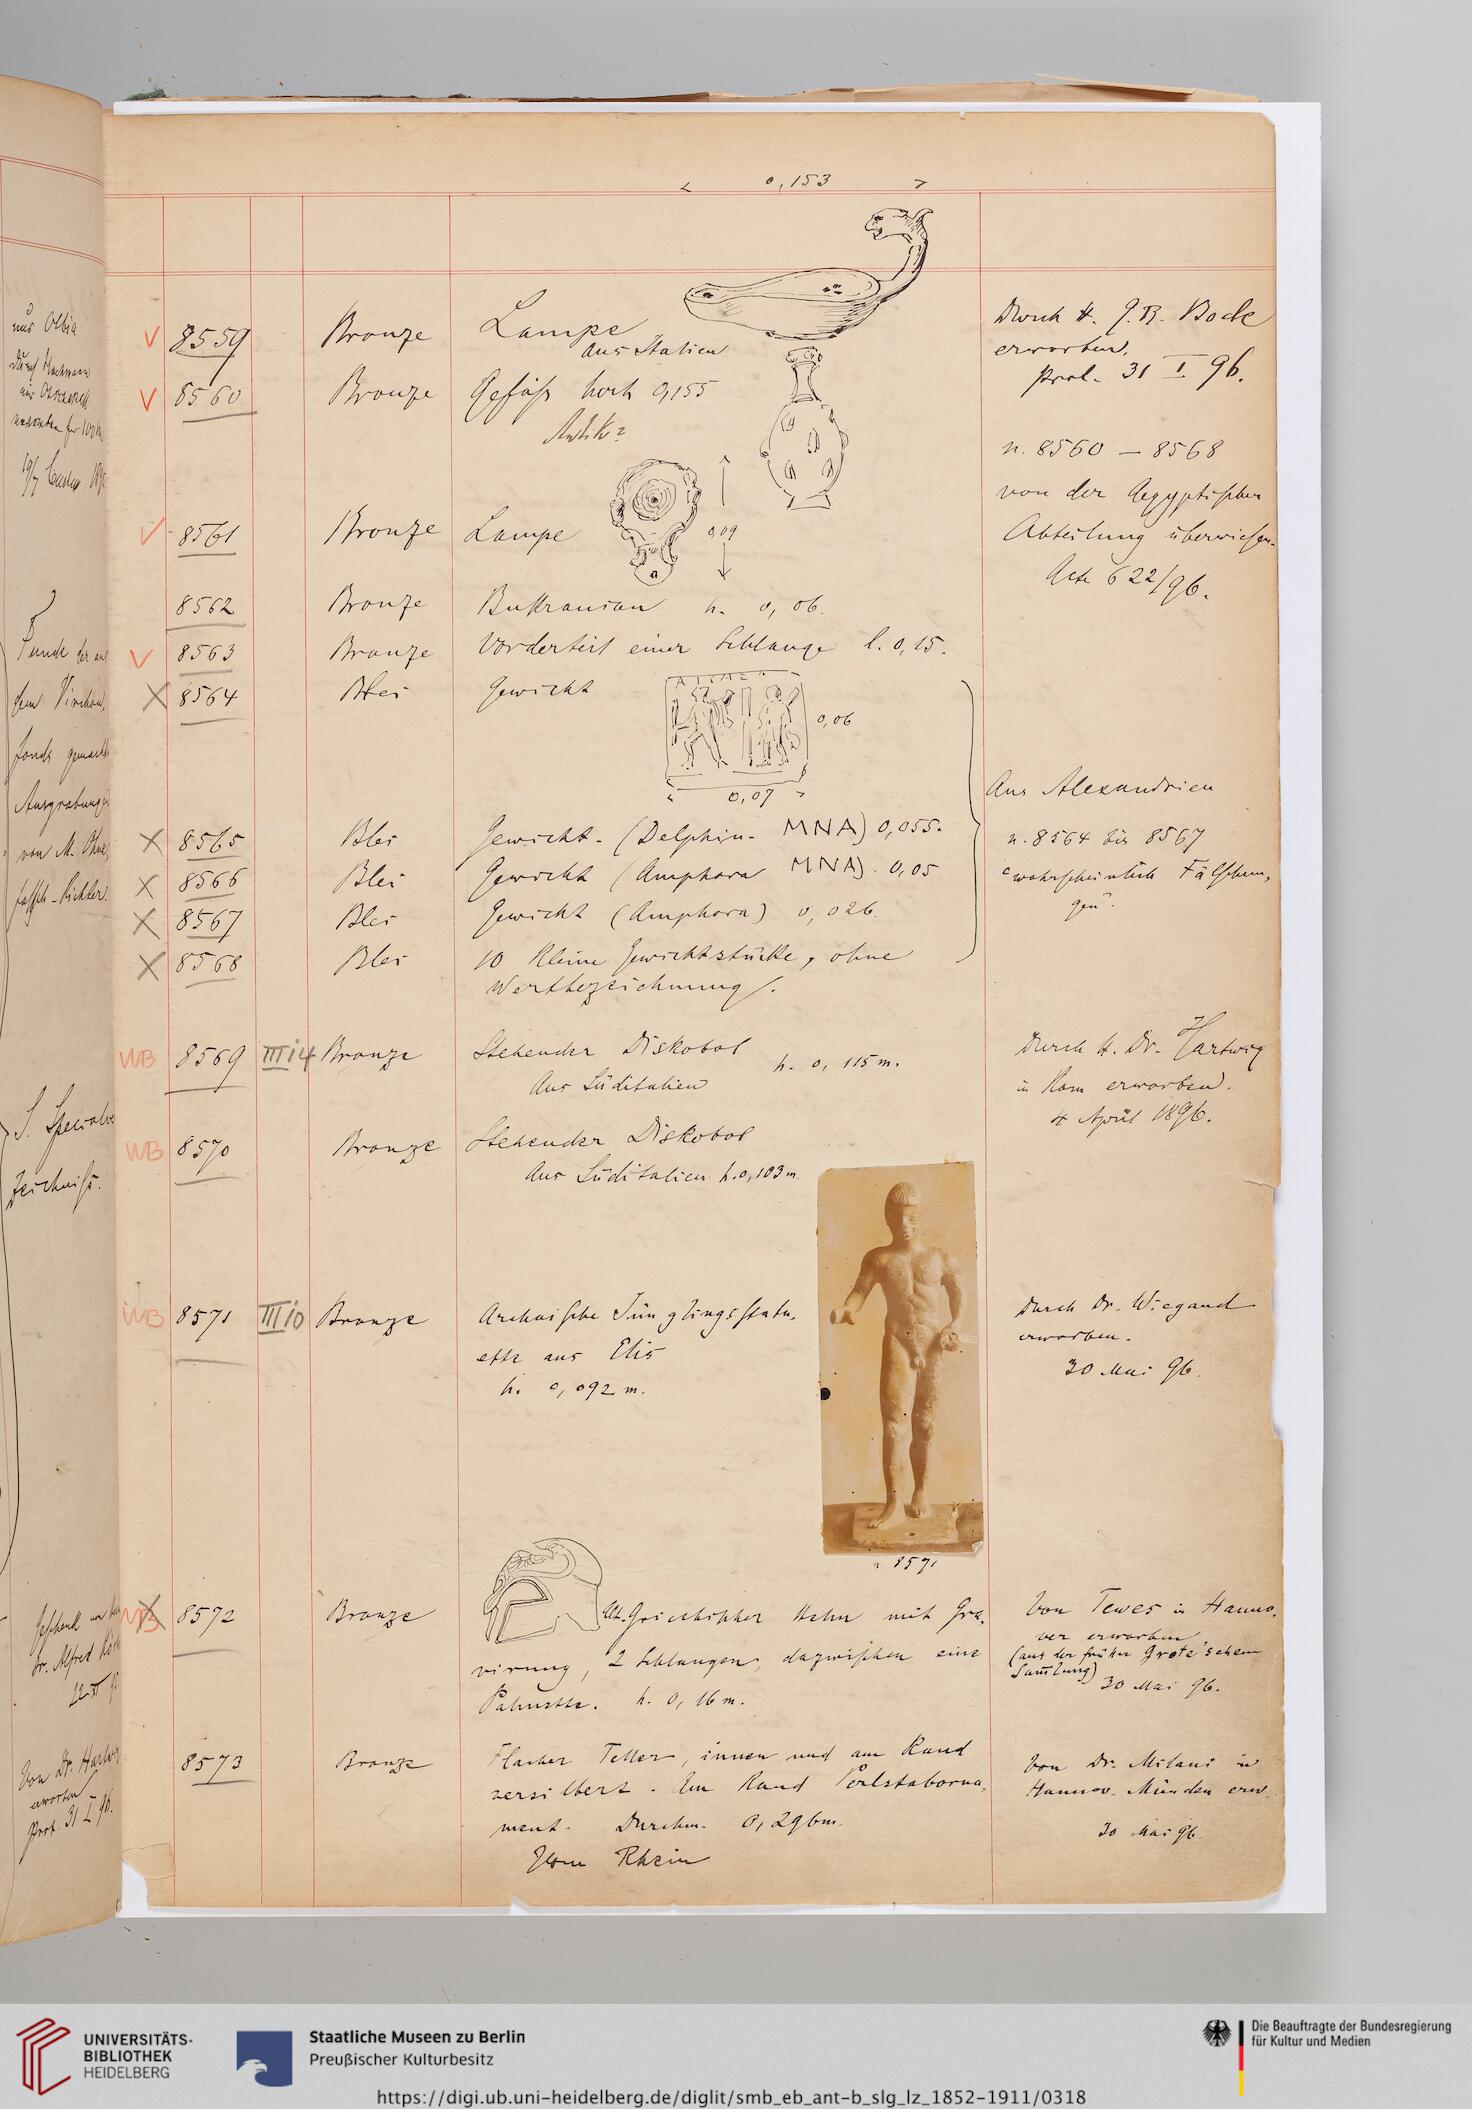 < 0,153 >
V 8559 Bronze Lampe
aus Italien
Durch H. J. B. Bock
erworben.
Prot. 31 I 96.
V 8560 Bronze Gefäss hoch 0,155
Antik?
n. 8560 – 8568
von der Aegyptischen
Abteilung überwiesen.
Acte 622/96.
V 8561 Bronze Lampe 0,09
8562 Bronze Bukranion h. 0,06.
V 8563 Bronze Vorderteil einer Schlange l. 0,15.
X 8564 Blei Gewicht 0,06
0,07
Aus Alexandrien
n. 8564 bis 8567
"wahrscheinlich Fälschun-
gen".
X 8565 Blei Gewicht. (Delphin. MNA) 0,055.
X 8566 Blei Gewicht (Amphora MNA). 0,05
X 8567 Blei Gewicht (Amphora) 0,026.
X 8568 Blei 10 kleine Gewichtstücke, ohne
Wertbezeichnung.
WB 8569 III i 4 Bronze Stehender Diskobol h. 0,115 m.
Aus Süditalien
Durch H. Dr. Hartwig
in Rom erworben.
4 April 1896.
WB 8570 Bronze Stehender Diskobol
Aus Süditalien h. 0,103 m.
WB 8571 III i 0 Bronze Archaische Jünglingsstatu-
ette aus Elis
h. 0,092 m.
Durch Dr. Wiegand
erworben.
30 Mai 96.
n. 8571
WB 8572 Bronze Alt. Griechischer Helm mit Gra-
virung, 2 Schlangen, dazwischen eine
Palmette. h. 0,16 m.
Von Tewes in Hanno-
ver erworben
(aus der früher Grote'schen
Sammlung) 30 Mai 96.
8573 Bronze Flacher Teller, innen und am Rand
versilbert. Am Rand Perlstaborna-
ment. Durchm. 0,296 m.
Vom Rhein
Von Dr. Milani in
Hannov. Münden erw.
30 Mai 96.
aus Olbia
Funde der auf
dem Virchow
fonds gemachten
Ausgrabungen
von M. Ohne
falsch-Richter.
S. Specialver
zeichniss.
Geschenk von
Dr. Alfred
Von Dr. Hartwig
erworben
Prot. 31 I 96.
UNIVERSITÄTS-
BIBLIOTHEK
HEIDELBERG
Staatliche Museen zu Berlin
Preußischer Kulturbesitz
Die Beauftragte der Bundesregierung
für Kultur und Medien
https://digi.ub.uni-heidelberg.de/diglit/smb_eb_ant-b_slg_lz_1852-1911/0318